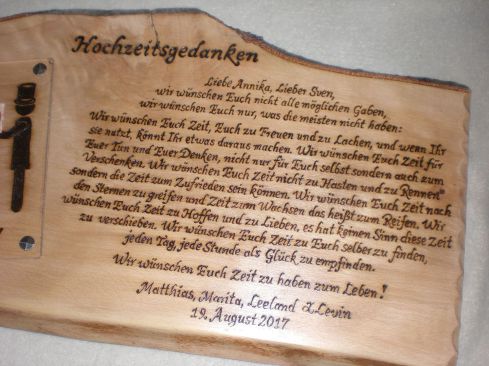 Hochzeitsgedanken
Liebe Annika, Lieber Sven,
wir wünschen Euch nicht alle möglichen Gaben,
wir wünschen Euch nur, was die meisten nicht haben:
Wir wünschen Euch Zeit, Euch zu Freuen und zu Lachen, und wenn Ihr
sie nutzt, könnt Ihr etwas daraus machen. Wir wünschen Euch Zeit für
Euer Tun und Euer Denken, nicht nur für Euch selbst sondern auch zum
Verschenken. Wir wünschen Euch Zeit nicht zu Hasten und zu Rennen"
sondern die Zeit zum Zufrieden sein können. Wir wünschen Euch Zeit nach
den Sternen zu greifen und Zeit zum Wachsen das heißt zum Reifen. Wir
wünschen Euch Zeit zu Hoffen und zu Lieben, es hat keinen Sinn diese Zeit
zu verschieben. Wir wünschen Euch Zeit zu Euch selber zu finden,
jeden Tag, jede Stunde als Glück zu empfinden.
Wir wünschen Euch Zeit zu haben zum Leben!
Matthias, Marita, Leeland & Levin
19. August 2017